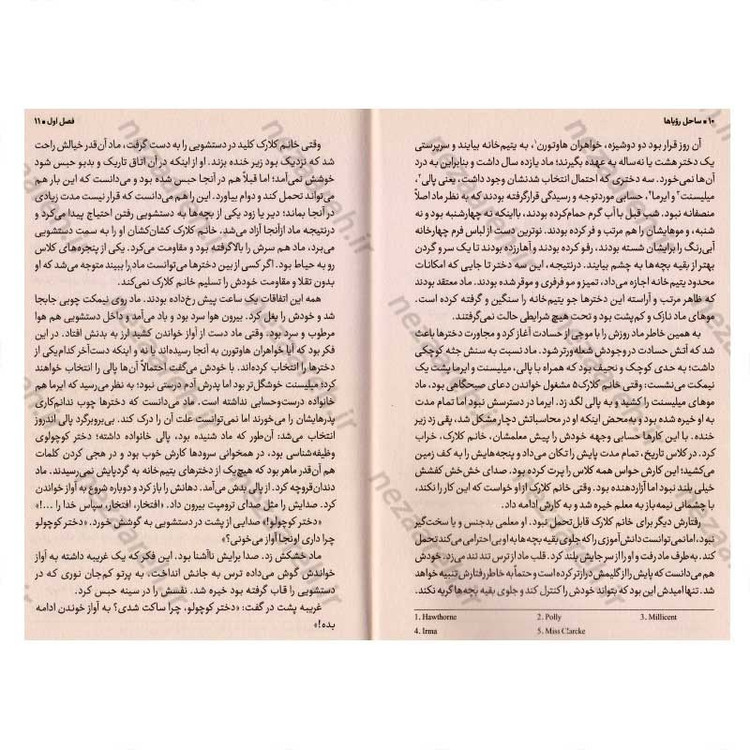 ۱۰ ■ ساحل رؤیاها
آن روز قرار بود دو دوشیزه، خواهران هاوتورن۱، به یتیم‌خانه بیایند و سرپرستی
یک دختر هشت یا نه‌ساله به عهده بگیرند؛ ماد یازده سال داشت و بنابراین به درد
آن‌ها نمی‌خورد. سه دختری که احتمال انتخاب شدنشان وجود داشت، یعنی پالی۲،
میلیسنت۳ و ایرما۴، حسابی موردتوجه و رسیدگی قرارگرفته بودند که به نظر ماد اصلاً
منصفانه نبود. شب قبل با آب گرم حمام‌کرده بودند، بااینکه نه چهارشنبه بود و نه
شنبه، و موهایشان را هم مرتب و فر کرده بودند. نوترین دست از لباس فرم چهارخانه
آبی‌رنگ را برایشان شسته بودند، رفو کرده بودند و آهارزده بودند تا یک سر و گردن
بهتر از بقیه بچه‌ها به چشم بیایند. درنتیجه، این سه دختر تا جایی که امکانات
محدود یتیم‌خانه اجازه می‌داد، تمیز و مو فرفری و موقر شده بودند. ماد معتقد بودند
که ظاهر مرتب و آراسته این دخترها جو یتیم‌خانه را سنگین و گرفته کرده است.
موهای ماد نازک و کم‌پشت بود و تحت هیچ شرایطی حالت نمی‌گرفتند.
به همین خاطر ماد روزش را با موجی از حسادت آغاز کرد و مجاورت دخترها باعث
شد که آتش حسادت در وجودش شعله‌ورتر شود. ماد نسبت به سنش جثه کوچکی
داشت؛ به حدی کوچک و نحیف بود که همراه با پالی، میلیسنت و ایرما پشت یک
نیمکت می‌نشست؛ وقتی خانم کلارک۵ مشغول خواندن دعای صبحگاهی بود، ماد
موهای میلیسنت را کشید و به پالی لگد زد. ایرما در دسترسش نبود اما تمام مدت
به او خیره شده بود و به‌محض اینکه او در محاسباتش دچار مشکل شد، پقی زد زیر
خنده. با این کارها حسابی وجهه خودش را پیش معلمشان، خانم کلارک، خراب
کرد. در کلاس تاریخ، تمام مدت پایش را تکان می‌داد و پنجه‌هایش را کف زمین
می‌کشید؛ این کارش حواس همه کلاس را پرت کرده بود. صدای خش‌خش کفشش
خیلی بلند نبود اما آزاردهنده بود. وقتی خانم کلارک از او خواست که این کار را نکند،
با چشمانی نیمه‌باز به معلم خیره شد و به کارش ادامه داد.
رفتارش دیگر برای خانم کلارک قابل‌تحمل نبود. او معلمی بدجنس و یا سخت‌گیر
نبود، اما نمی‌توانست دانش‌آموزی را که جلوی بقیه بچه‌ها به او بی‌احترامی می‌کند تحمل
کند. به‌طرف ماد رفت و او را از سر جایش بلند کرد. قلب ماد از ترس تند تند می‌زد. خودش
هم می‌دانست که پایش را از گلیمش درازتر کرده است و حتماً به خاطر رفتارش تنبیه خواهد
شد. تنها امیدش این بود که بتواند خودش را کنترل کند و جلوی بقیه بچه‌ها گریه نکند.
1. Hawthorne 2. Polly 3. Millicent
4. Irma 5. Miss Clarcke
فصل اول ■ ۱۱
وقتی خانم کلارک کلید در دستشویی را به دست گرفت، ماد آن‌قدر خیالش راحت
شد که نزدیک بود زیر خنده بزند. او از اینکه در آن اتاق تاریک و بدبو حبس شود
خوشش نمی‌آمد؛ اما قبلاً هم در آنجا حبس شده بود و می‌دانست که این بار هم
می‌تواند تحمل کند و دوام بیاورد. این را هم می‌دانست که قرار نیست مدت زیادی
در آنجا بماند؛ دیر یا زود یکی از بچه‌ها به دستشویی رفتن احتیاج پیدا می‌کرد و
درنتیجه ماد ازآنجا آزاد می‌شد. خانم کلارک کشان‌کشان او را به سمت دستشویی
می‌برد، ماد هم سرش را بالاگرفته بود و مقاومت می‌کرد. یکی از پنجره‌های کلاس
رو به حیاط بود. اگر کسی از بین دخترها می‌توانست ماد را ببیند متوجه می‌شد که او
بدون تقلا و مقاومت خودش را تسلیم خانم کلارک نمی‌کند.
همه این اتفاقات یک ساعت پیش رخ‌داده بودند. ماد روی نیمکت چوبی جابجا
شد و خودش را بغل کرد. بیرون هوا سرد بود و باد می‌آمد و داخل دستشویی هم هوا
مرطوب و سرد بود. وقتی ماد دست از آواز خواندن کشید لرز به بدنش افتاد. در این
فکر بود که آیا خواهران هاوتورن به آنجا رسیده‌اند یا نه و اینکه دست‌آخر کدام‌یکی از
دخترها را انتخاب کرده‌اند. با خودش می‌گفت احتمالاً آن‌ها پالی را انتخاب خواهند
کرد؛ میلیسنت خوشگل‌تر بود اما پدرش آدم درستی نبود؛ به نظر می‌رسید که ایرما هم
خانواده درست‌وحسابی نداشته است. ماد می‌دانست که دخترها چوب ندانم‌کاری
پدرهایشان را می‌خورند اما نمی‌توانست علت آن را درک کند. بی‌بروبرگرد پالی اندروز
انتخاب می‌شد؛ آن‌طور که ماد شنیده بود، پالی خانواده داشته؛ دختر کوچولوی
وظیفه‌شناسی بود، در همخوانی سرودها کارش خوب بود و در هجی کردن کلمات
هم آن‌قدر ماهر بود که هیچ‌یک از دخترهای یتیم‌خانه به گردپایش نمی‌رسیدند. ماد
دندان‌قروچه کرد. از پالی بدش می‌آمد. دهانش را باز کرد و دوباره شروع به آواز خواندن
کرد. صدایش را مثل صدای ترومپت بیرون داد. «افتخار، افتخار، سپاس خدا را ...!»
«دختر کوچولو!» صدایی از پشت در دستشویی به گوشش خورد. «دختر کوچولو
چرا داری اونجا آواز می‌خونی؟»
ماد خشکش زد. صدا برایش ناآشنا بود. این فکر که یک غریبه داشته به آواز
خواندنش گوش می‌داده ترس به جانش انداخت. به پرتو کم‌جان نوری که در
دستشویی را قاب گرفته بود خیره شد. نفسش را در سینه حبس کرد.
غریبه پشت در گفت: «دختر کوچولو، چرا ساکت شدی؟ به آواز خوندن ادامه
بده!»
nezaareh.ir